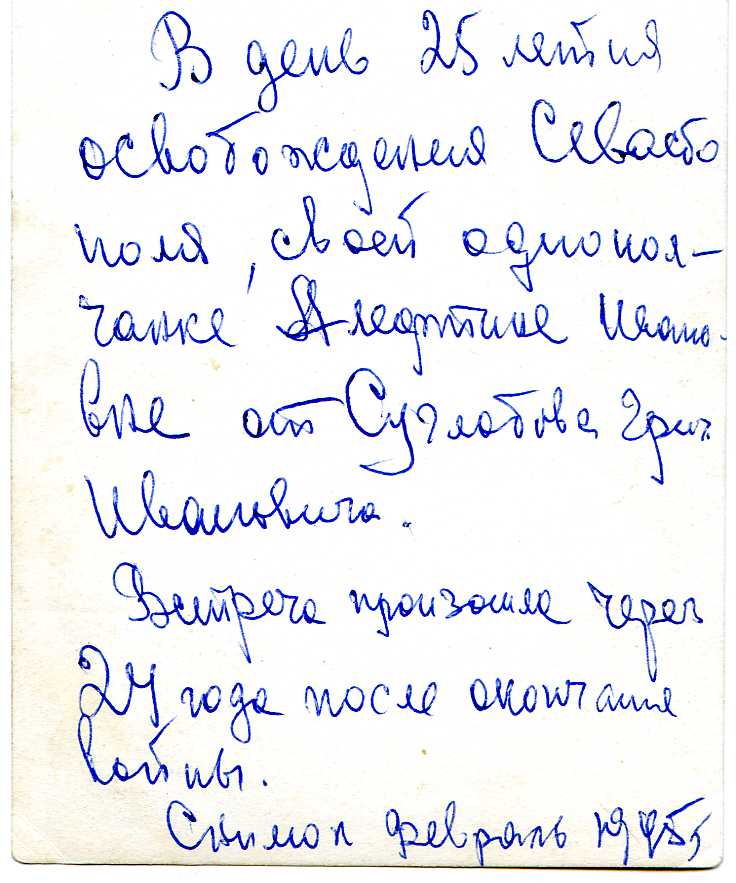 В день 25 летия
освобождения Севасто
поля, своей однопол-
чанке Алефтине Ивано-
вне от Суглобова Григ
Ивановича.
Встреча произошла через
24 года после окончания
войны.
Снимок февраль